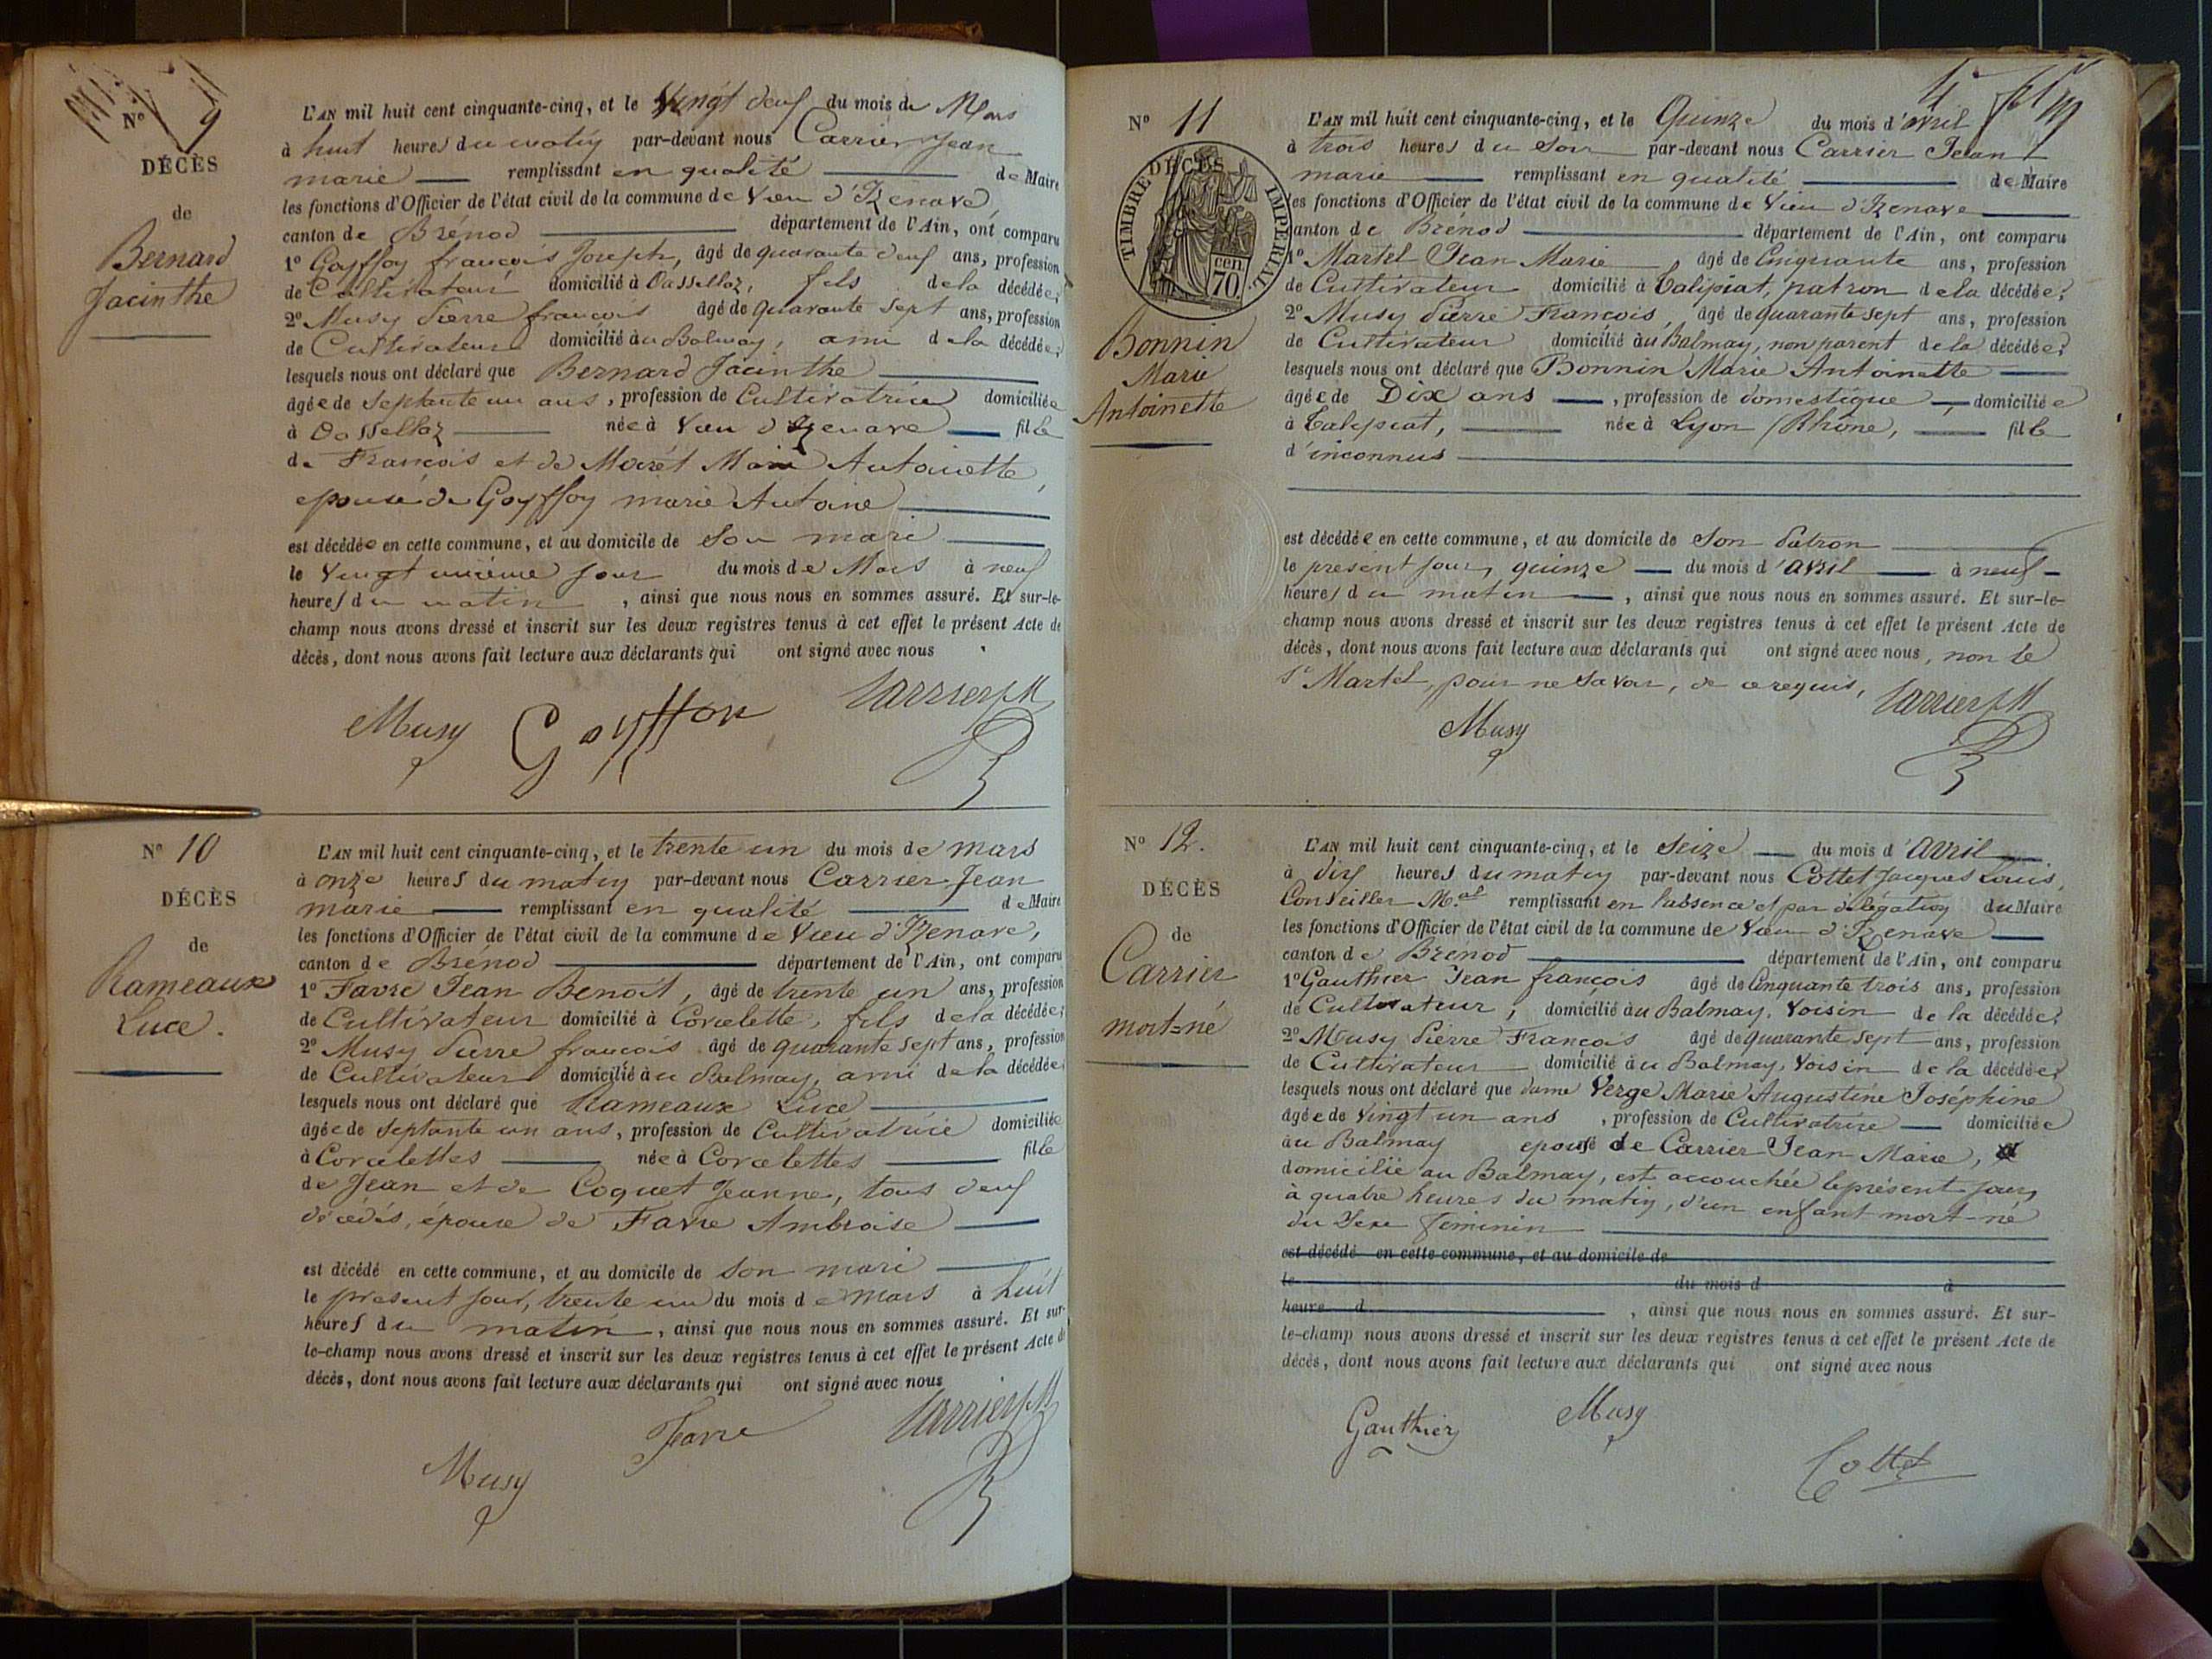 Nº 9
DÉCÈS
de
Bernard
Jacinthe
L'AN mil huit cent cinquante-cinq, et le Vingt deux du mois de Mars
à huit heures du matin par-devant nous Carrier Jean
marie remplissant en qualité de Maire
les fonctions d'Officier de l'état civil de la commune de Vieu d'Izenave,
canton de Brénod département de l'Ain, ont comparu
1º Goyffoy françois Joseph, âgé de quarante deux ans, profession
de Cultivateur domicilié à Oassellaz, fils de la décédée;
2º Musy Pierre françois âgé de quarante sept ans, profession
de Cultivateur domicilié au Balmay, ami de la décédée;
lesquels nous ont déclaré que Bernard Jacinthe
âgée de septante un ans, profession de Cultivatrice domiciliée
à Oassellaz née à Vieu d'Izenave fille
de François et de Moirét Marie Antoinette,
epouse de Goyffoy marie Antoine
est décédée en cette commune, et au domicile de son mari
le Vingt unième jour du mois de Mars à neuf
heures du matin, ainsi que nous nous en sommes assuré. Et sur-le-
champ nous avons dressé et inscrit sur les deux registres tenus à cet effet le présent Acte de
décès, dont nous avons fait lecture aux déclarants qui ont signé avec nous
Musy Goyffon Carrier JM
Nº 10
DÉCÈS
de
Rameaux
Luce.
L'AN mil huit cent cinquante-cinq, et le trente un du mois de mars
à onze heures du matin par-devant nous Carrier Jean
marie remplissant en qualité de Maire
les fonctions d'Officier de l'état civil de la commune de Vieu d'Izenave,
canton de Brénod département de l'Ain, ont comparu
1º Favre Jean Benoit, âgé de trente un ans, profession
de Cultivateur domicilié à Corcelette, fils de la décédée;
2º Musy Pierre françois âgé de quarante sept ans, profession
de Cultivateur domicilié au Balmay, ami de la décédée;
lesquels nous ont déclaré que Rameaux Luce
âgée de septante un ans, profession de Cultivatrice domiciliée
à Corcelettes née à Corcelettes fille
de Jean et de Coquet Jeanne, tous deux
décédés, épouse de Favre Ambroise
est décédé en cette commune, et au domicile de son mari
le présent jour, trente un du mois de mars à huit
heures du matin, ainsi que nous nous en sommes assuré. Et sur-
le-champ nous avons dressé et inscrit sur les deux registres tenus à cet effet le présent Acte de
décès, dont nous avons fait lecture aux déclarants qui ont signé avec nous
Musy Favre Carrier JM
Nº 11
DÉCÈS
TIMBRE IMPÉRIAL
cen.
70
Bonnin
Marie
Antoinette
L'AN mil huit cent cinquante-cinq, et le Quinze du mois d'avril
à trois heures du soir par-devant nous Carrier Jean
marie remplissant en qualité de Maire
les fonctions d'Officier de l'état civil de la commune de Vieu d'Izenave
canton de Brénod département de l'Ain, ont comparu
1º Martel Jean Marie âgé de Cinquante ans, profession
de Cultivateur domicilié à Talipiat, patron de la décédée;
2º Musy Pierre François, âgé de quarante sept ans, profession
de Cultivateur domicilié au Balmay, non parent de la décédée;
lesquels nous ont déclaré que Bonnin Marie Antoinette
âgée de Dix ans, profession de domestique, domiciliée
à Talipiat, née à Lyon (Rhône, fille
d'inconnus
est décédée en cette commune, et au domicile de son Patron
le présent jour, quinze du mois d'avril à neuf
heures du matin, ainsi que nous nous en sommes assuré. Et sur-le-
champ nous avons dressé et inscrit sur les deux registres tenus à cet effet le présent Acte de
décès, dont nous avons fait lecture aux déclarants qui ont signé avec nous, non le
Sr Martel, pour ne savoir, de ce requis,
Musy Carrier JM
Nº 12.
DÉCÈS
de
Carrier
mort-né
L'AN mil huit cent cinquante-cinq, et le Seize du mois d'avril
à dix heures du matin par-devant nous Cottet Jacques Louis,
Conseiller M.al remplissant en l'absence et par délégation du Maire
les fonctions d'Officier de l'état civil de la commune de Vieu d'Izenave
canton de Brénod département de l'Ain, ont comparu
1º Gauthier Jean françois âgé de Cinquante trois ans, profession
de Cultivateur, domicilié au Balmay, voisin de la décédée;
2º Musy Pierre François âgé de quarante sept ans, profession
de Cultivateur domicilié au Balmay, voisin de la décédée;
lesquels nous ont déclaré que dame Verge Marie Augustine Joséphine
âgée de vingt un ans, profession de Cultivatrice domiciliée
au Balmay epouse de Carrier Jean Marie,
domicilié au Balmay, est accouchée le présent jour,
à quatre heures du matin, d'un enfant mort-né
du Sexe féminin
est décédé en cette commune, et au domicile de
le du mois d à
heure d, ainsi que nous nous en sommes assuré. Et sur-
le-champ nous avons dressé et inscrit sur les deux registres tenus à cet effet le présent Acte de
décès, dont nous avons fait lecture aux déclarants qui ont signé avec nous
Gauthier Musy
Cottet